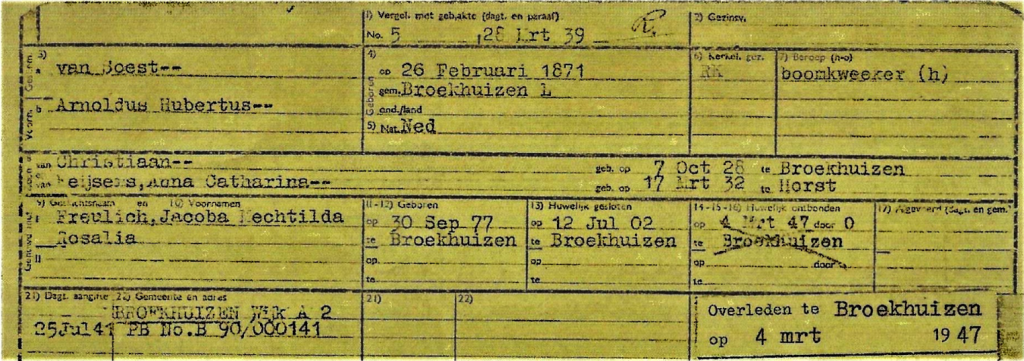 1) Vergel. met geb.akte (dagt. en paraaf)
2) Gezinsv.
No. 5 ,28 Mrt 39 R.
3) Gesl.n. a van Soest--
4) Geboren op 26 Februari 1871
6) Kerkel. gez. RK
7) Beroep (h-o) boomkweeker (h)
gem. Broekhuizen L
Voorn. b Arnoldus Hubertus--
and./land
5) Nat. Ned
van Christiaan-- geb. op 7 Oct 28 te Broekhuizen
en van Anna Catharina-- geb. op 17 Mrt 32 te Horst
9) Geslachtsnaam en 10) Voornamen
11-12) Geboren
13) Huwelijk gesloten
14-15-16) Huwelijk ontbonden
17) (dagt. en gem.)
I Freulich, Jacoba Mechtilda
Rosalia
op 30 Sep 77
op 12 Jul 02
op 4 Mrt 47 door O
te Broekhuizen
te Broekhuizen
te Broekhuizen
II
op
op
op door
te
te
te
21) Dagt. aangifte 22) Gemeente en adres
21)
22)
BROEKHUIZEN Wijk A 2
25 Jul 41 PB No.B 90/000141
Overleden te Broekhuizen
op 4 mrt 1947